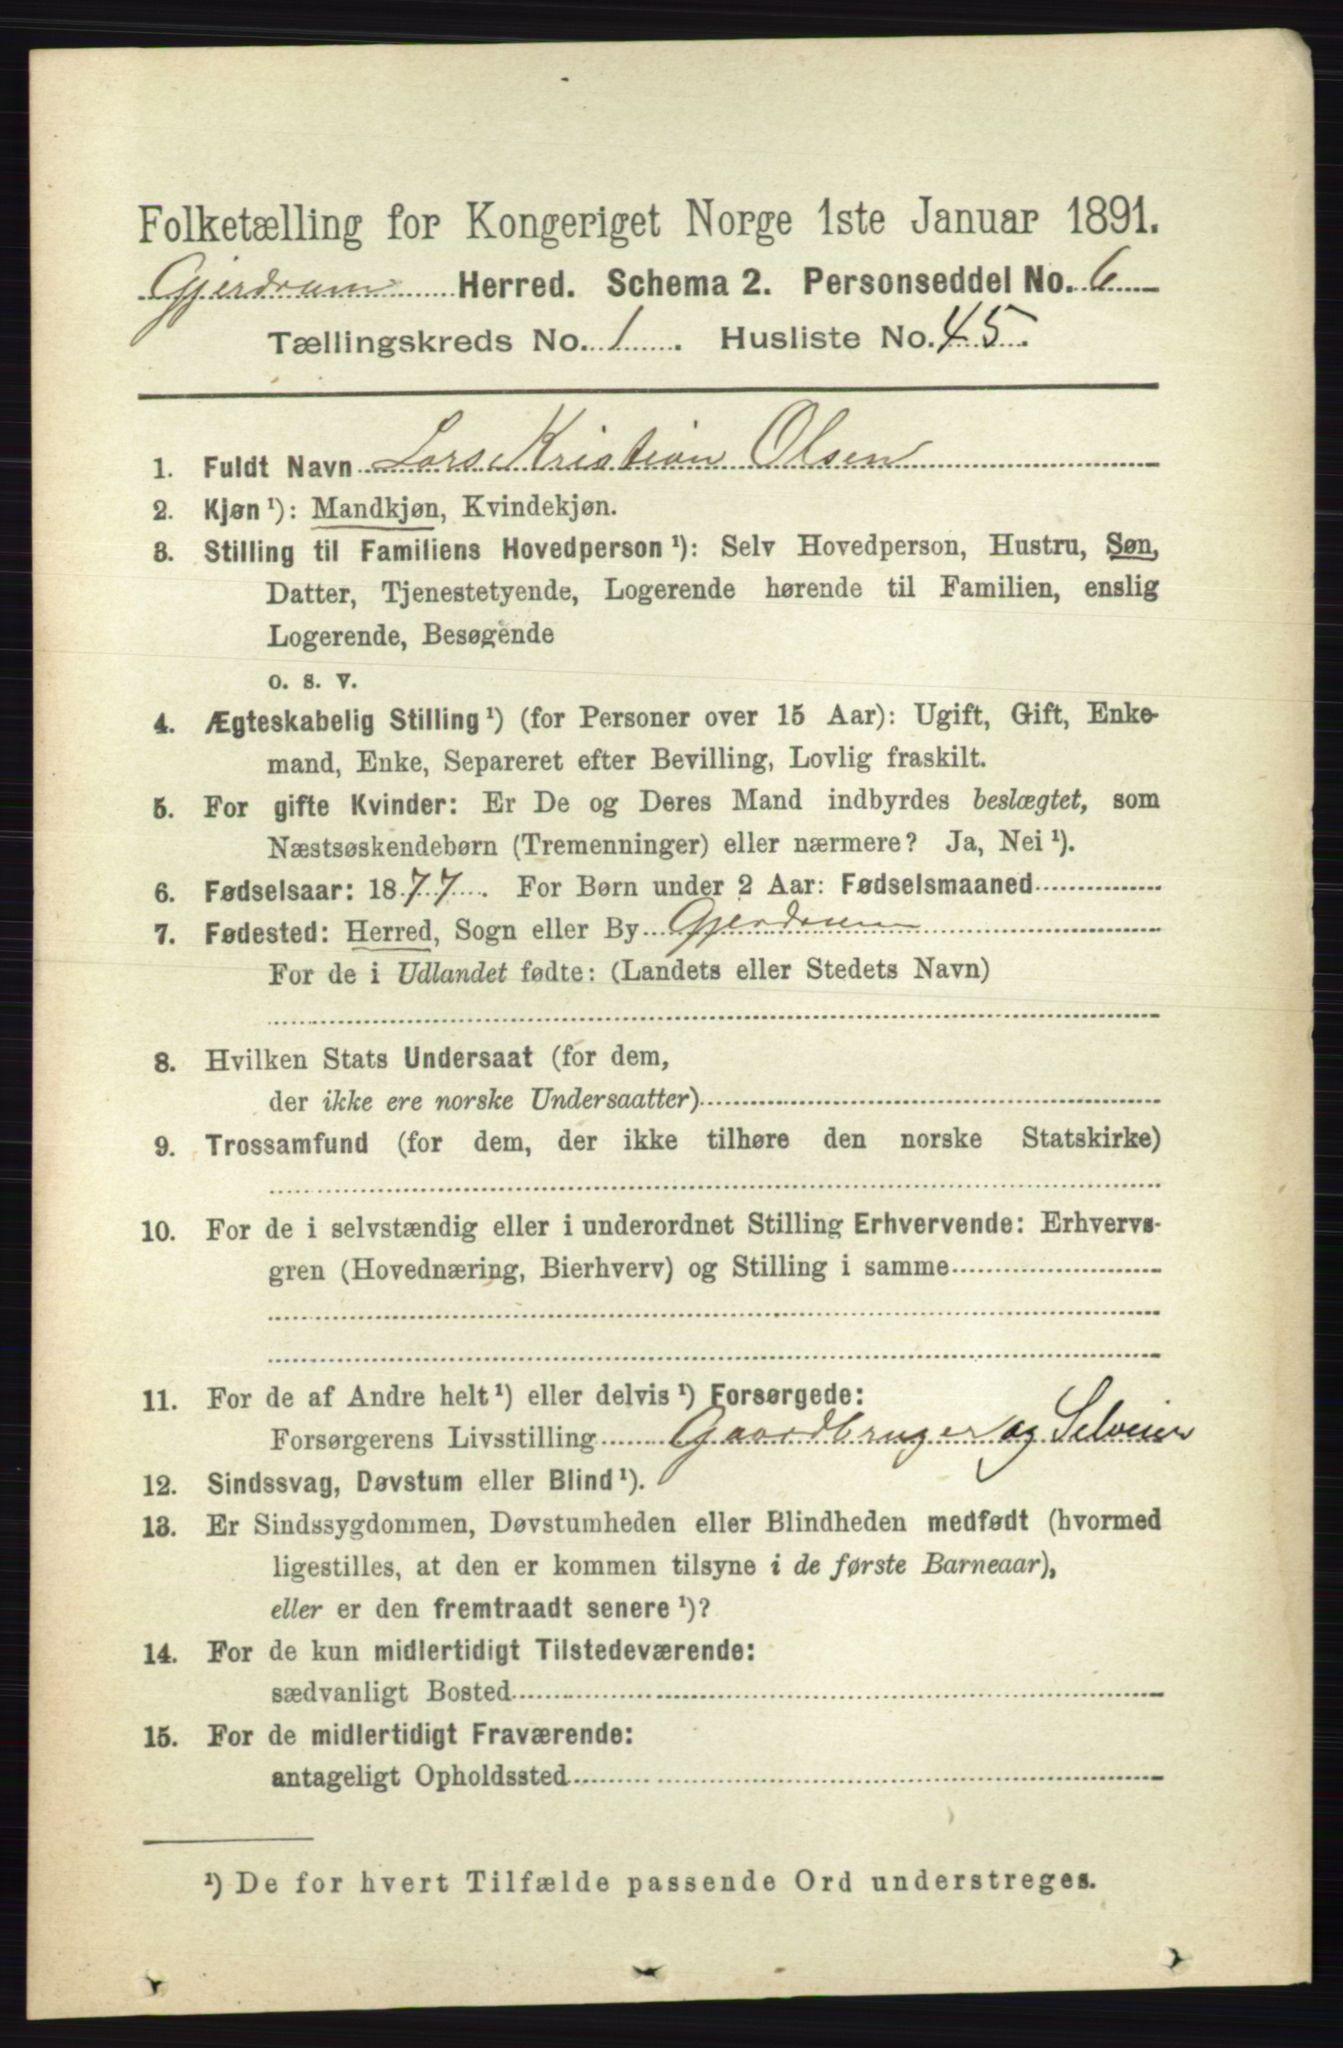 Folketælling for Kongeriget Norge 1ste Januar 1891.
Gjerdrum Herred. Schema 2. Personseddel No. 6
Tællingskreds No. 1. Husliste No. 45.
1. Fuldt Navn Lars Kristian Olsen
2. Kjøn ¹): Mandkjøn, Kvindekjøn.
3. Stilling til Familiens Hovedperson ¹): Selv Hovedperson, Hustru, Søn,
Datter, Tjenestetyende, Logerende hørende til Familien, enslig
Logerende, Besøgende
o. s. v.
4. Ægteskabelig Stilling ¹) (for Personer over 15 Aar): Ugift, Gift, Enke-
mand, Enke, Separeret efter Bevilling, Lovlig fraskilt.
5. For gifte Kvinder: Er De og Deres Mand indbyrdes beslægtet, som
Næstsøskendebørn (Tremenninger) eller nærmere? Ja, Nei ¹).
6. Fødselsaar: 1877. For Børn under 2 Aar: Fødselsmaaned
7. Fødested: Herred, Sogn eller By Gjerdrum
For de i Udlandet fødte: (Landets eller Stedets Navn)
8. Hvilken Stats Undersaat (for dem,
der ikke ere norske Undersaatter)
9. Trossamfund (for dem, der ikke tilhøre den norske Statskirke)
10. For de i selvstændig eller i underordnet Stilling Erhvervende: Erhvervs-
gren (Hovednæring, Bierhverv) og Stilling i samme
11. For de af Andre helt ¹) eller delvis ¹) Forsørgede:
Forsørgerens Livsstilling Gaardbruger og Selveier
12. Sindssvag, Døvstum eller Blind ¹).
13. Er Sindssygdommen, Døvstumheden eller Blindheden medfødt (hvormed
ligestilles, at den er kommen tilsyne i de første Barneaar),
eller er den fremtraadt senere ¹)?
14. For de kun midlertidigt Tilstedeværende:
sædvanligt Bosted
15. For de midlertidigt Fraværende:
antageligt Opholdssted
¹) De for hvert Tilfælde passende Ord understreges.